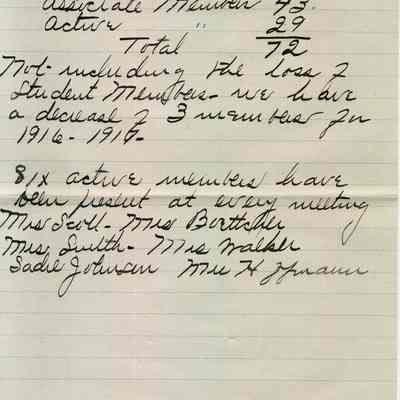 Associate Member 43.
Active " 29
Total 72
Not including the loss of
Student Members - we have
a decrease of 3 members for
1916 - 1917 -
Six active members have
been present at every meeting
Mrs Scott - Mrs Boettcher
Mrs. Smith - Mrs Walker
Sadie Johnson Mrs Hoffmann